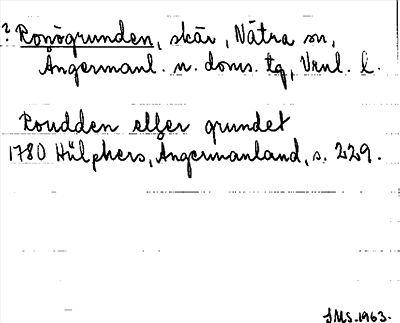 ? Ronögrunden, skär, Nätra sn,
Ångermanl. n. doms. tg, Vrnl. l.
Roudden eller grundet
1780 Hülphers, Ångermanland, s. 229.
JMS. 1963.